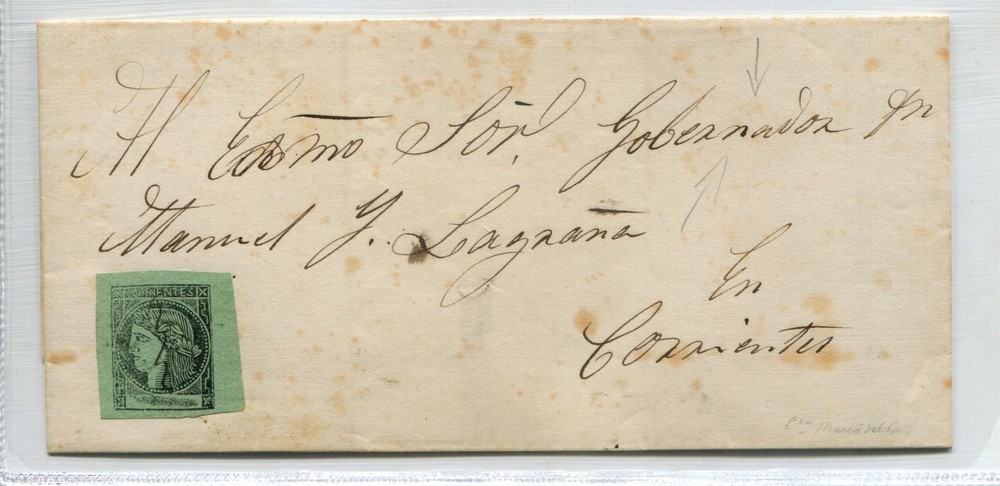 Al Exmo Sor. Gobernador Dn
Manuel Y. Lagraña
En
Corrientes
CORRIENTES